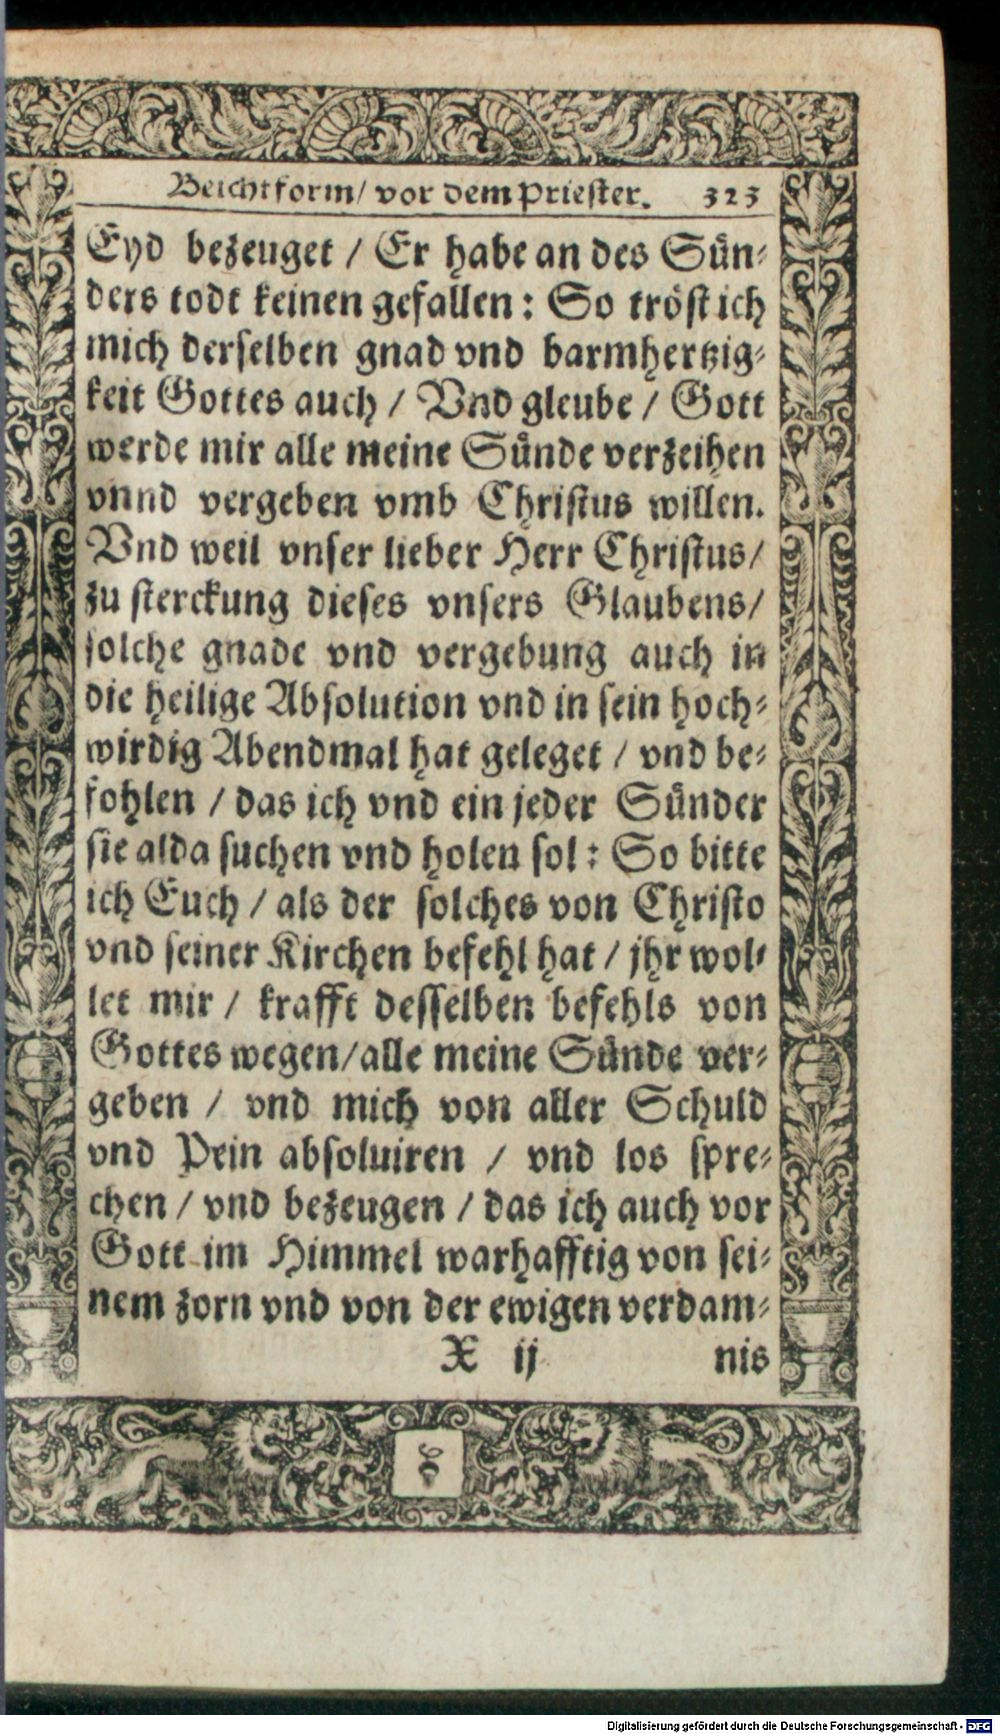 Beichtform/ vor dem Priester. 323
Eyd bezeuget / Er habe an des Sün⸗
ders todt keinen gefallen: So tröst ich
mich derselben gnad vnd barmhertzig⸗
keit Gottes auch / Vnd gleube / Gott
werde mir alle meine Sünde verzeihen
vnnd vergeben vmb Christus willen.
Vnd weil vnser lieber Herr Christus/
zu sterckung dieses vnsers Glaubens/
solche gnade vnd vergebung auch in
die heilige Absolution vnd in sein hoch⸗
wirdig Abendmal hat geleget / vnd be⸗
fohlen / das ich vnd ein jeder Sünder
sie alda suchen vnd holen sol: So bitte
ich Euch / als der solches von Christo
vnd seiner Kirchen befehl hat / jhr wol⸗
let mir / krafft desselben befehls von
Gottes wegen/alle meine Sünde ver⸗
geben / vnd mich von aller Schuld
vnd Pein absoluiren / vnd los spre⸗
chen / vnd bezeugen / das ich auch vor
Gott im Himmel warhafftig von sei⸗
nem zorn vnd von der ewigen verdam⸗
X ij nis
Digitalisierung gefördert durch die Deutsche Forschungsgemeinschaft - DFG